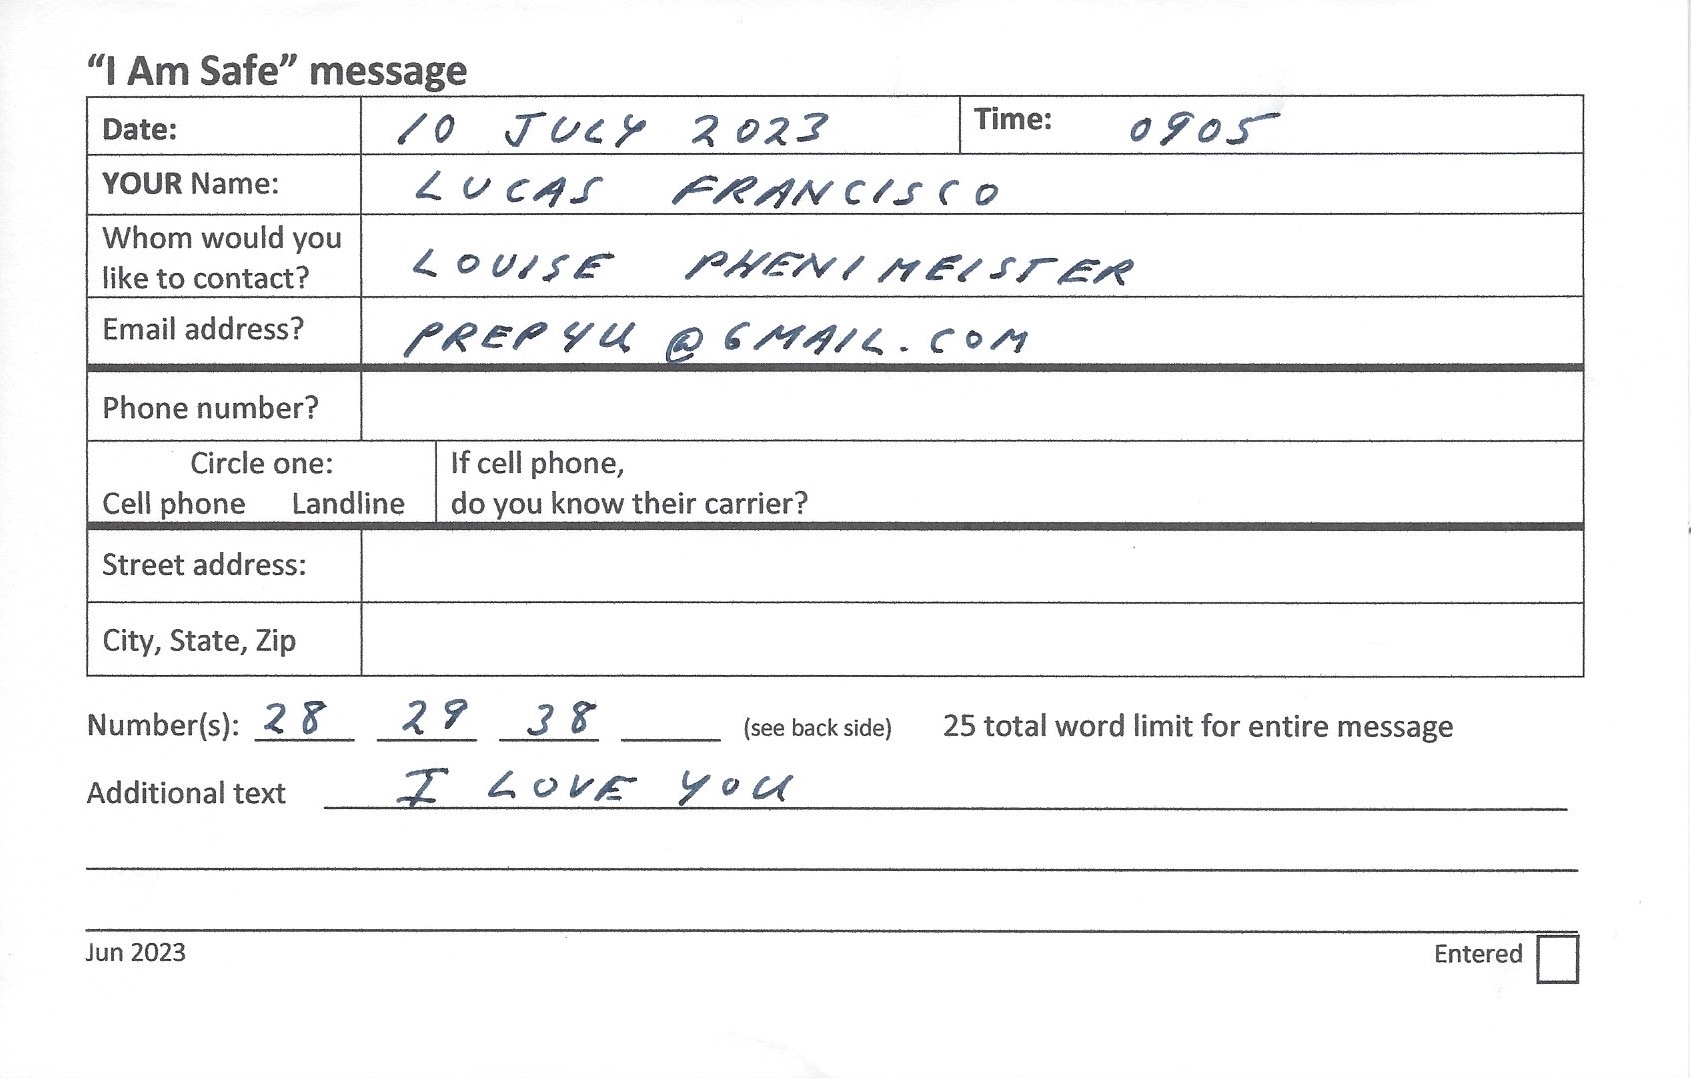 “I Am Safe” message
Date: 10 JULY 2023 Time: 0905
YOUR Name: LUCAS FRANCISCO
Whom would you
like to contact? LOUISE PHENIMEISTER
Email address? PREP4U@GMAIL.COM
Phone number?
Circle one: If cell phone,
Cell phone Landline do you know their carrier?
Street address:
City, State, Zip
Number(s): 28 29 38 (see back side) 25 total word limit for entire message
Additional text I LOVE YOU
Jun 2023 Entered